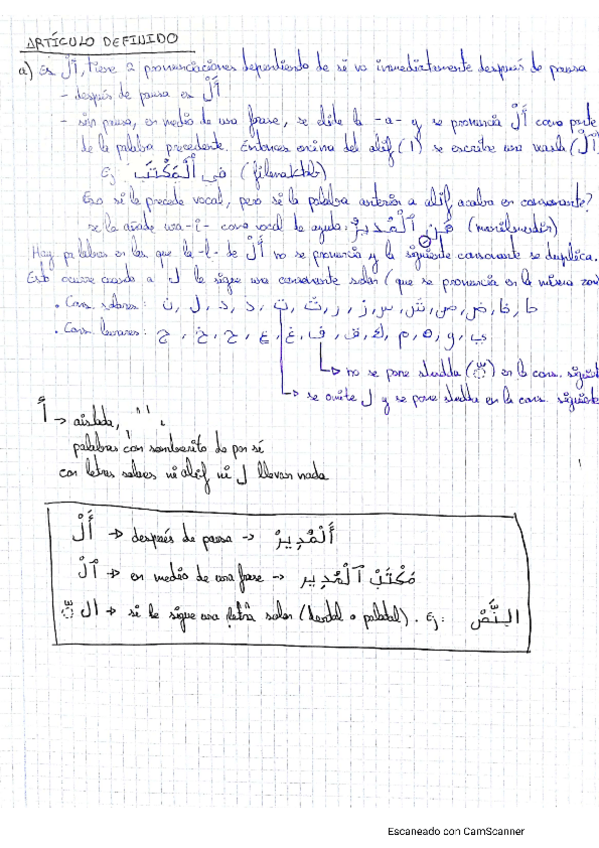 ARTÍCULO DEFINIDO
a) Es أَلْ, tiene 2 pronunciaciones dependiendo de si va inmediatamente después de pausa
- después de pausa es أَلْ
- sin pausa, en medio de una frase, se elide la -a- y se pronuncia أَلْ como parte
de la palabra precedente. Entonces encima del alif (ا) se escribe una wasla (ٱلْ)
Ej: فِي ٱلْمَكْتَب (filmaktab)
Eso si le precede vocal, pero si la palabra anterior a alif acaba en consonante?
se le añade una -i- como vocal de ayuda: مَنِ ٱلْمُدِيرْ (manilmudir)
Hay palabras en las que la -l- de أَلْ no se pronuncia y la siguiente consonante se duplica.
Esto ocurre cuando a ل le sigue una consonante solar (que se pronuncia en la misma zona
• Cons. solares: ن, ل, د, ذ, ت, ث, ر, ز, س, ش, ص, ض, ط, ظ
• Cons. lunares: ج, ح, خ, ع, غ, ف, ق, ك, م, ه, و, ي
no se pone shadda (ّ) en la cons. siguiente
se omite ل y se pone shadda en la cons. siguiente
أ → aislada,
palabras con sombrerito de por sí
con letras solares ni alif ni ل llevan nada
أَلْ → después de pausa → أَلْمُدِيرْ
ٱلْ → en medio de una frase → مَكْتَبْ ٱلْمُدِير
ال ّ → si le sigue una letra solar (dental o palatal). Ej: النَّصْ
Escaneado con CamScanner